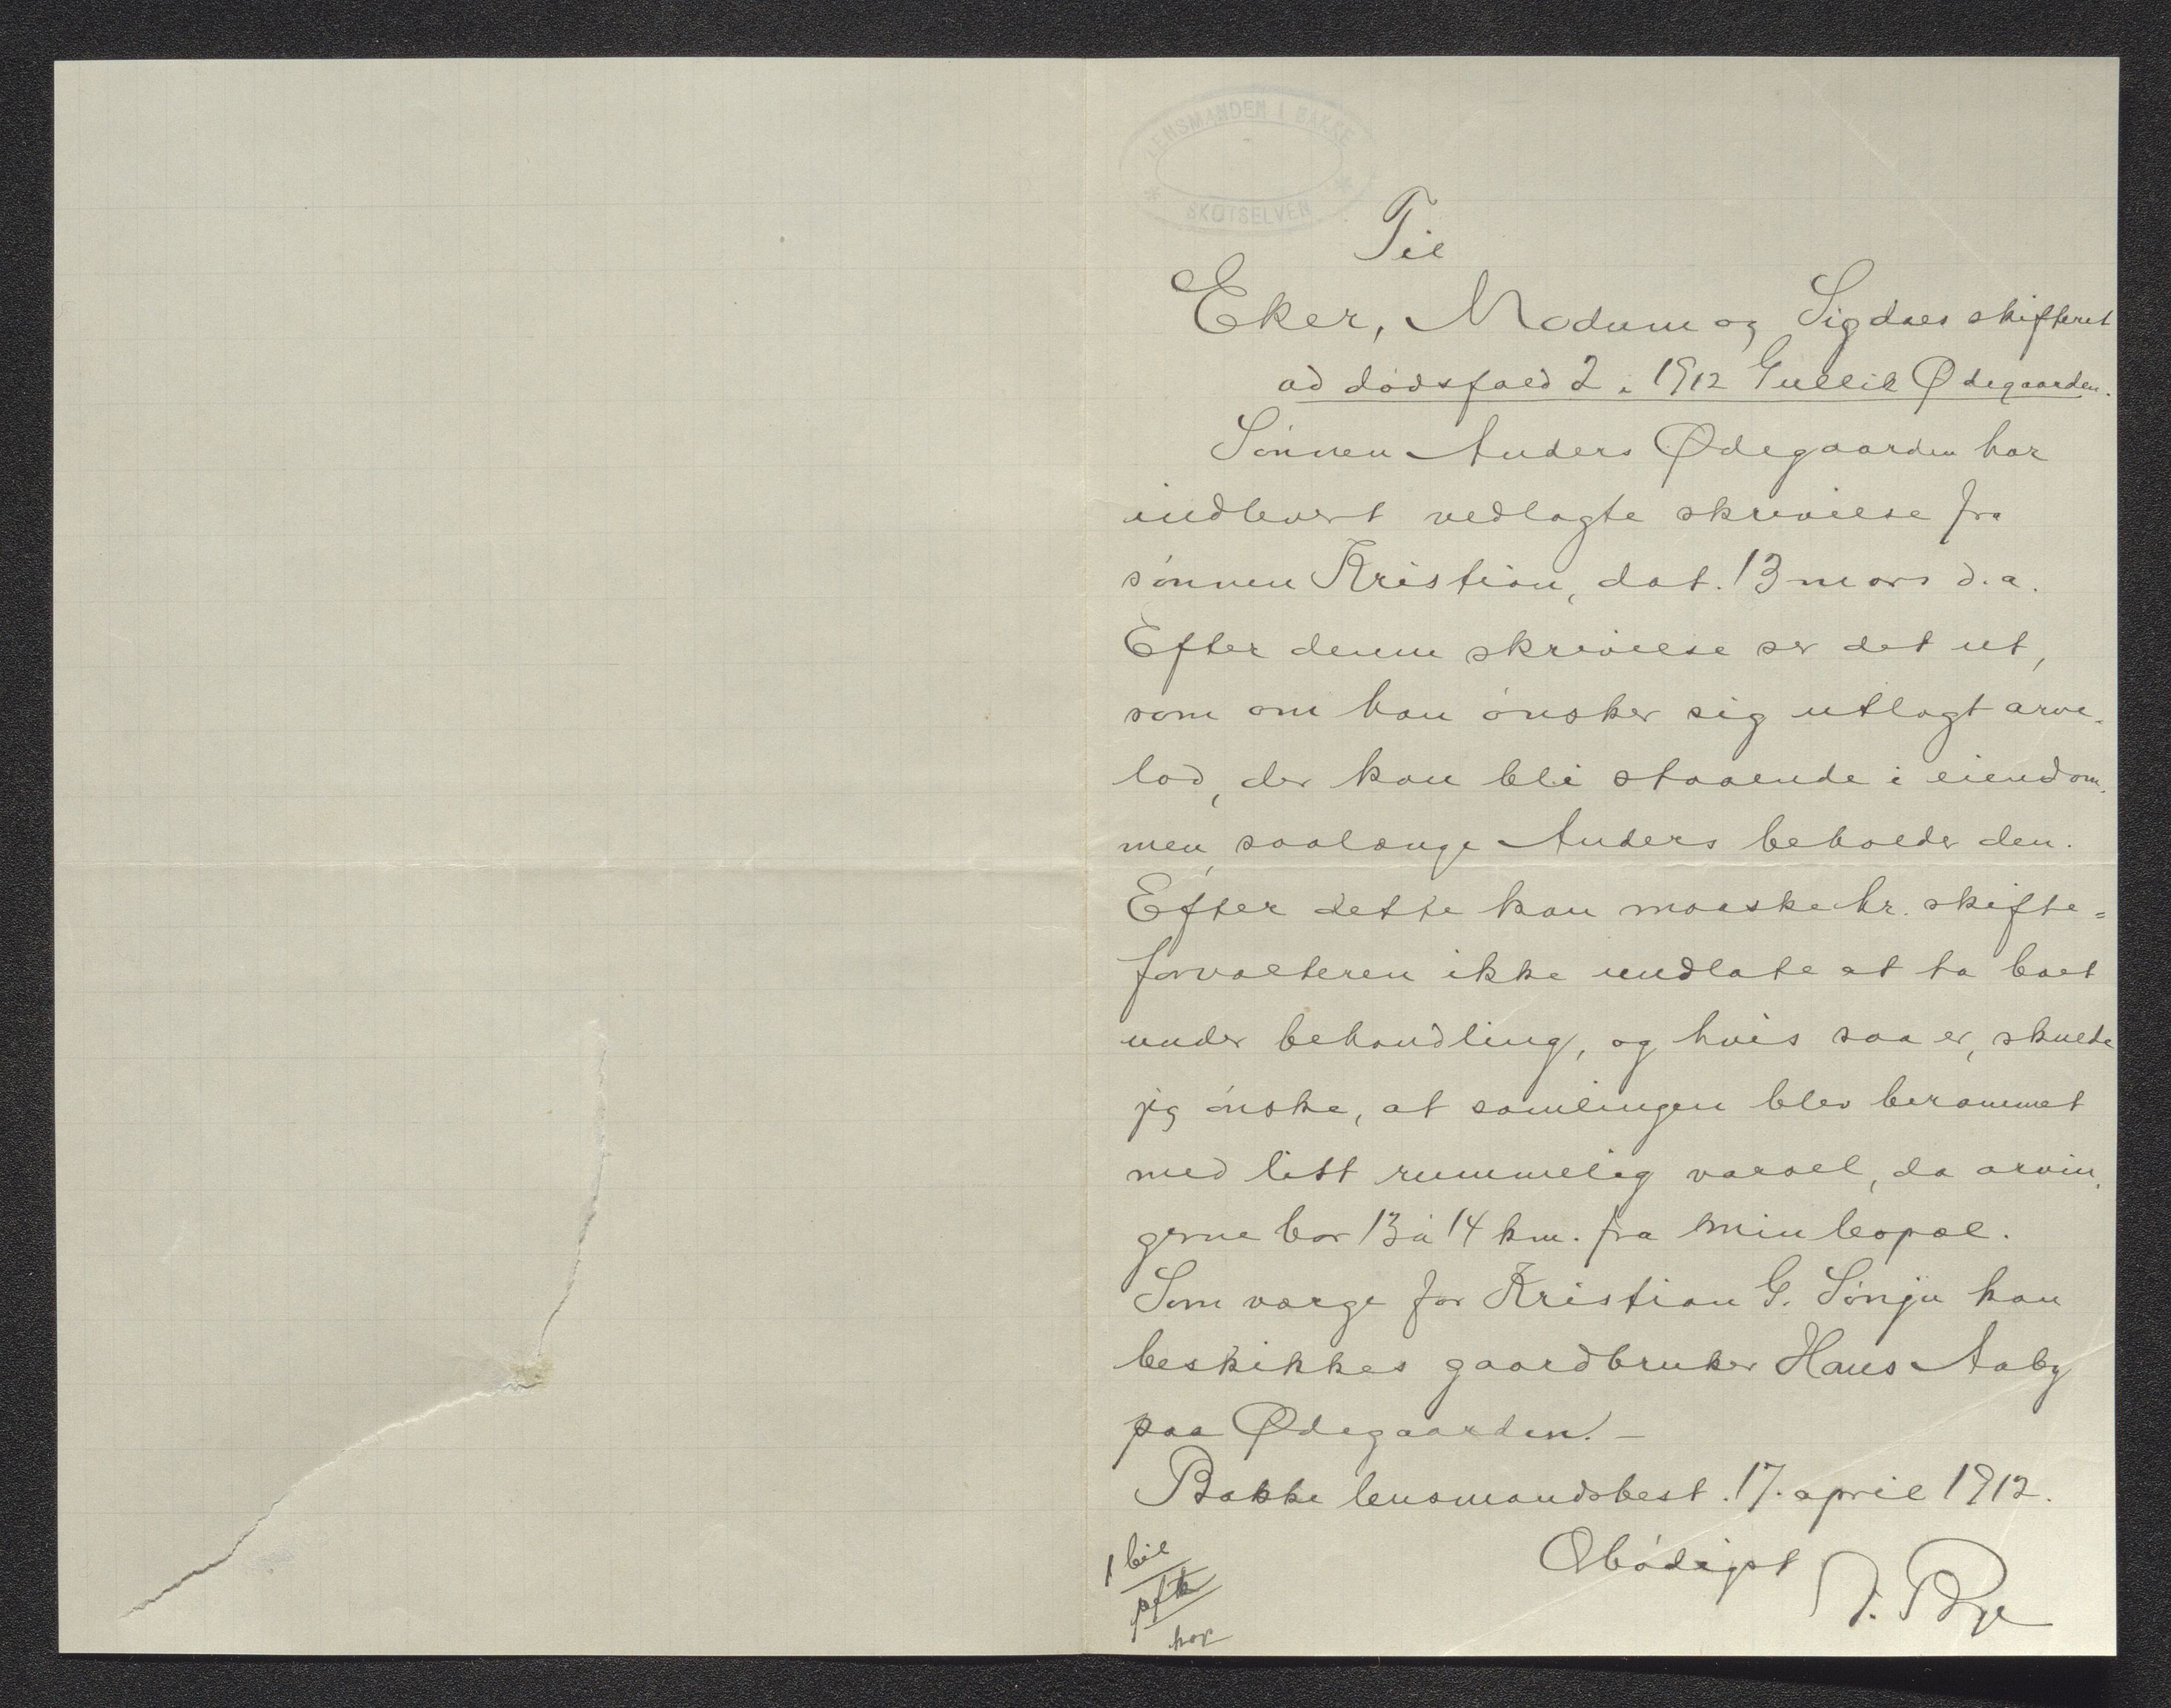 LENSMANDEN I BAKKE
* SKOTSELVEN *
Til
Eker, Modum og Sigdals skifteret
ad dødsfald 2 i 1912 Gullik Ødegaarden.
Sønnen Anders Ødegaarden har
indlevert vedlagte skrivelse fra
sønnen Kristian, dat. 13 mars d.a.
Efter denne skrivelse ser det ut,
som om han ønsker sig utlagt arve-
lod, der kan bli staaende i eiendom-
men, saalænge Anders beholder den.
Efter dette kan maaske hr. skifte=
forvalteren ikke undlate at ta boet
under behandling, og hvis saa er, skulde
jeg ønske, at samlingen blev berammet
med litt rummelig varsel, da arvin-
gerne bor 13 à 14 km. fra min bopæl.
Som værge for Kristian G. Sønju kan
beskikkes gaardbruker Hans Aaby
paa Ødegaarden. —
Bakke lensmandsbest. 17. april 1912.
Ærbødigst
1 bil